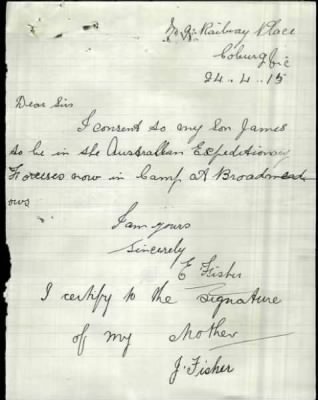 Railway Place
Coburg Vic
24.4.15
Dear Sir
I consent to my Son James
to be in the Australian Expeditionary
Forcess now in Camp At Broadmead
ows
I am yours
Sincerely
E Fisher
I certify to the Signature
of my Mother
J. Fisher